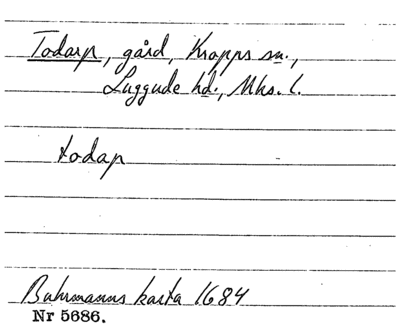 Todarp, gård, Kropps sn.,
Luggude hd., Mhs. l.
todap
Buhrmanns karta 1684
Nr 5686.